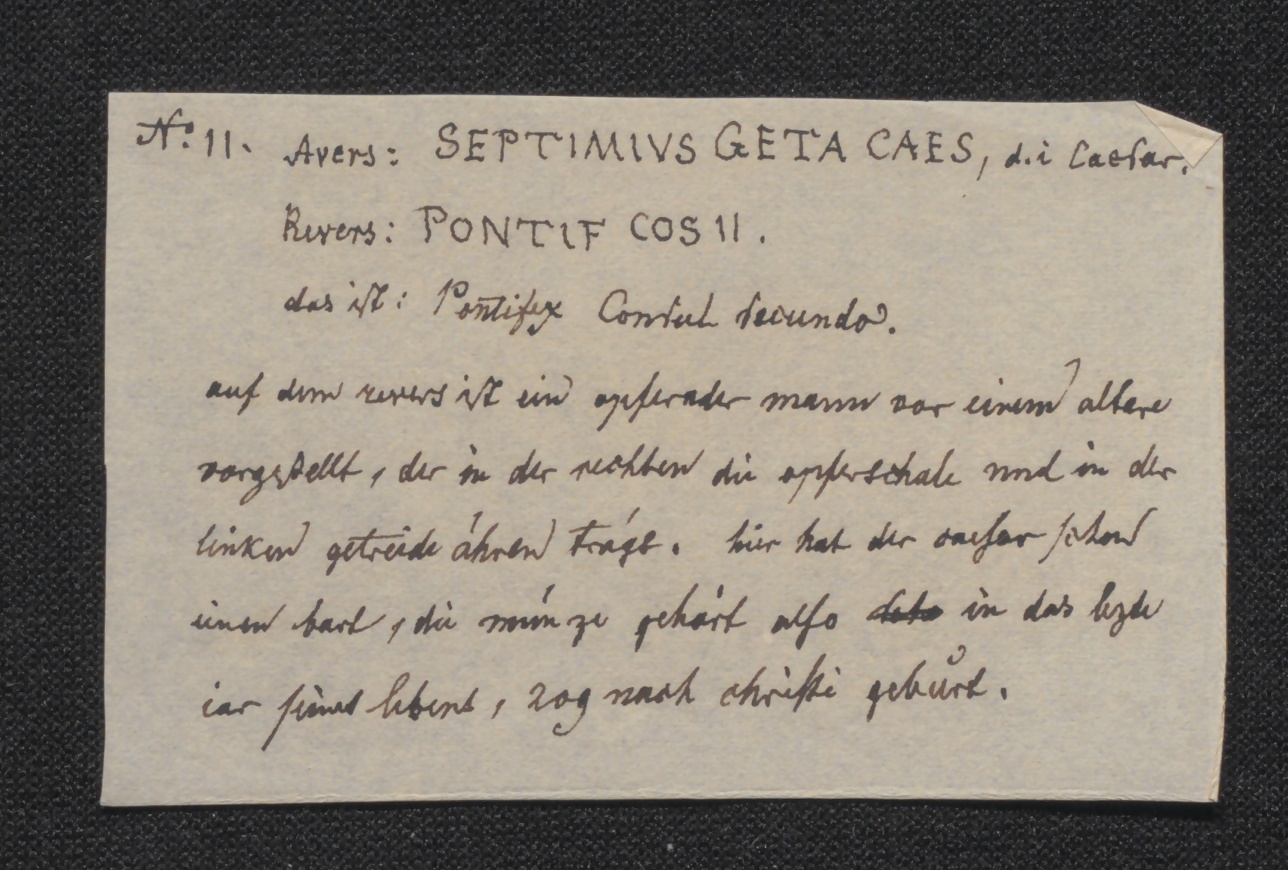 No. 11. Avers: SEPTIMIVS GETA CAES, d.i Caesar.
Revers: PONTIF COS II.
das ist: Pontifex Consul secundo.
auf dem revers ist ein opfernder mann vor einem altare
vorgestellt, der in der rechten die opferschale und in der
linken getreide ähren trägt. hier hat der caesar schon
einen bart, die münze gehört also in das lezte
iar seines lebens, 209 nach christi geburt.